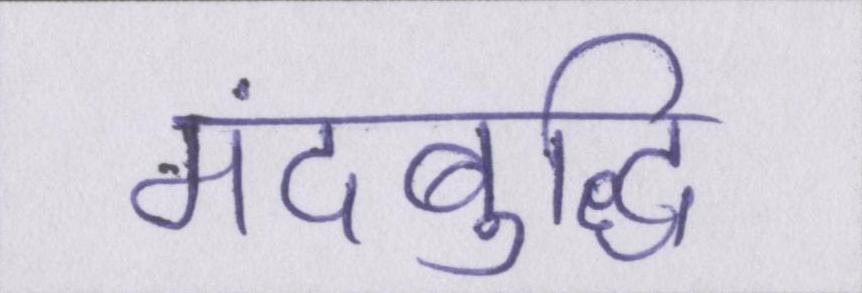 मंदबुद्धि